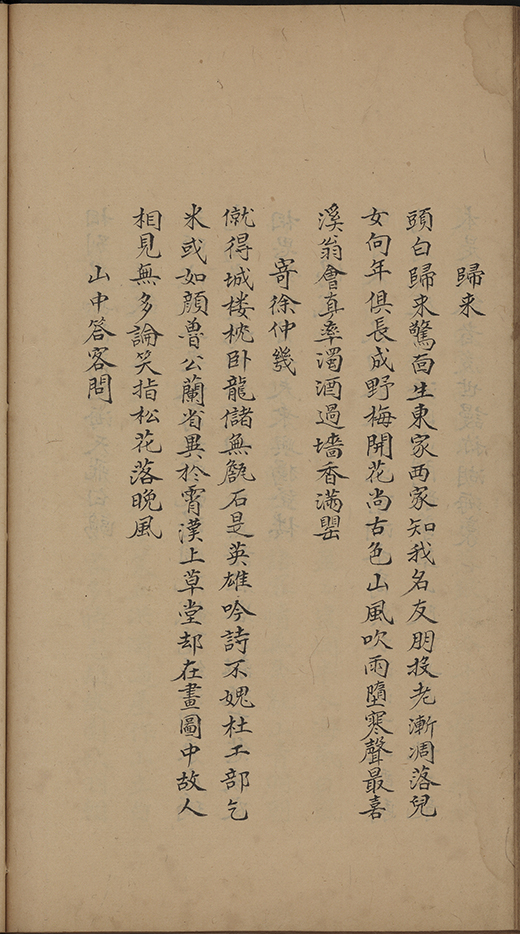 歸来
頭白歸来驚面生東家西家知我名友朋投老漸凋落兒
女向年俱長成野梅開花尚古色山風吹雨墮寒聲最喜
溪翁會真率濁酒過墻香滿罌
寄徐仲幾
僦得城楼枕卧龍儲無甔石是英雄吟詩不媿杜工部乞
米或如顔魯公蘭省異於霄漢上草堂却在畫圖中故人
相見無多論笑指松花落晚風
山中答客問